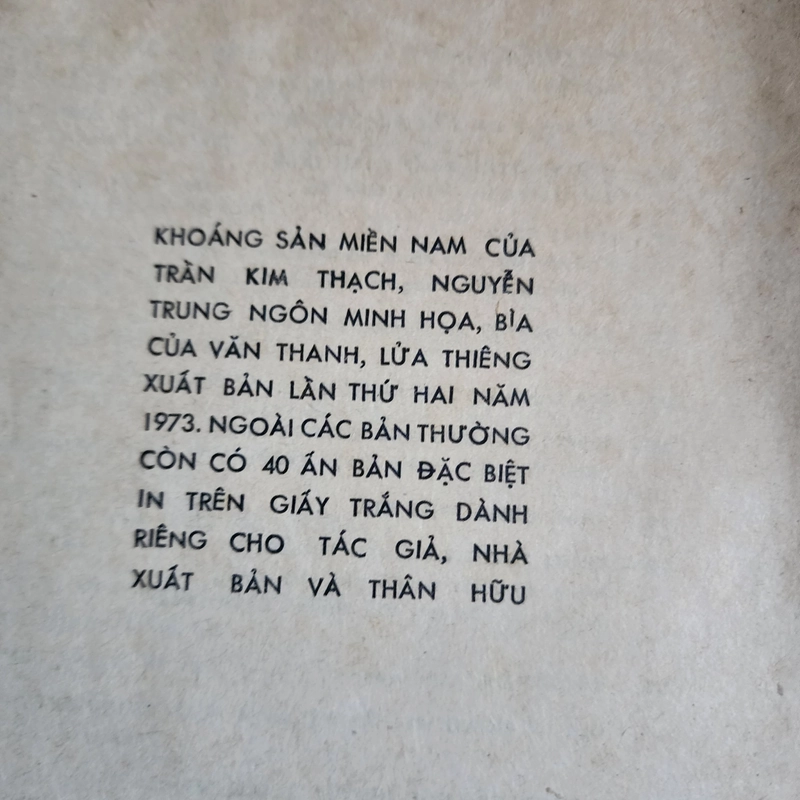 KHOÁNG SẢN MIỀN NAM CỦA
TRẦN KIM THẠCH, NGUYỄN
TRUNG NGÔN MINH HỌA, BÌA
CỦA VĂN THANH, LỬA THIÊNG
XUẤT BẢN LẦN THỨ HAI NĂM
1973. NGOÀI CÁC BẢN THƯỜNG
CÒN CÓ 40 ẤN BẢN ĐẶC BIỆT
IN TRÊN GIẤY TRẮNG DÀNH
RIÊNG CHO TÁC GIẢ, NHÀ
XUẤT BẢN VÀ THÂN HỮU